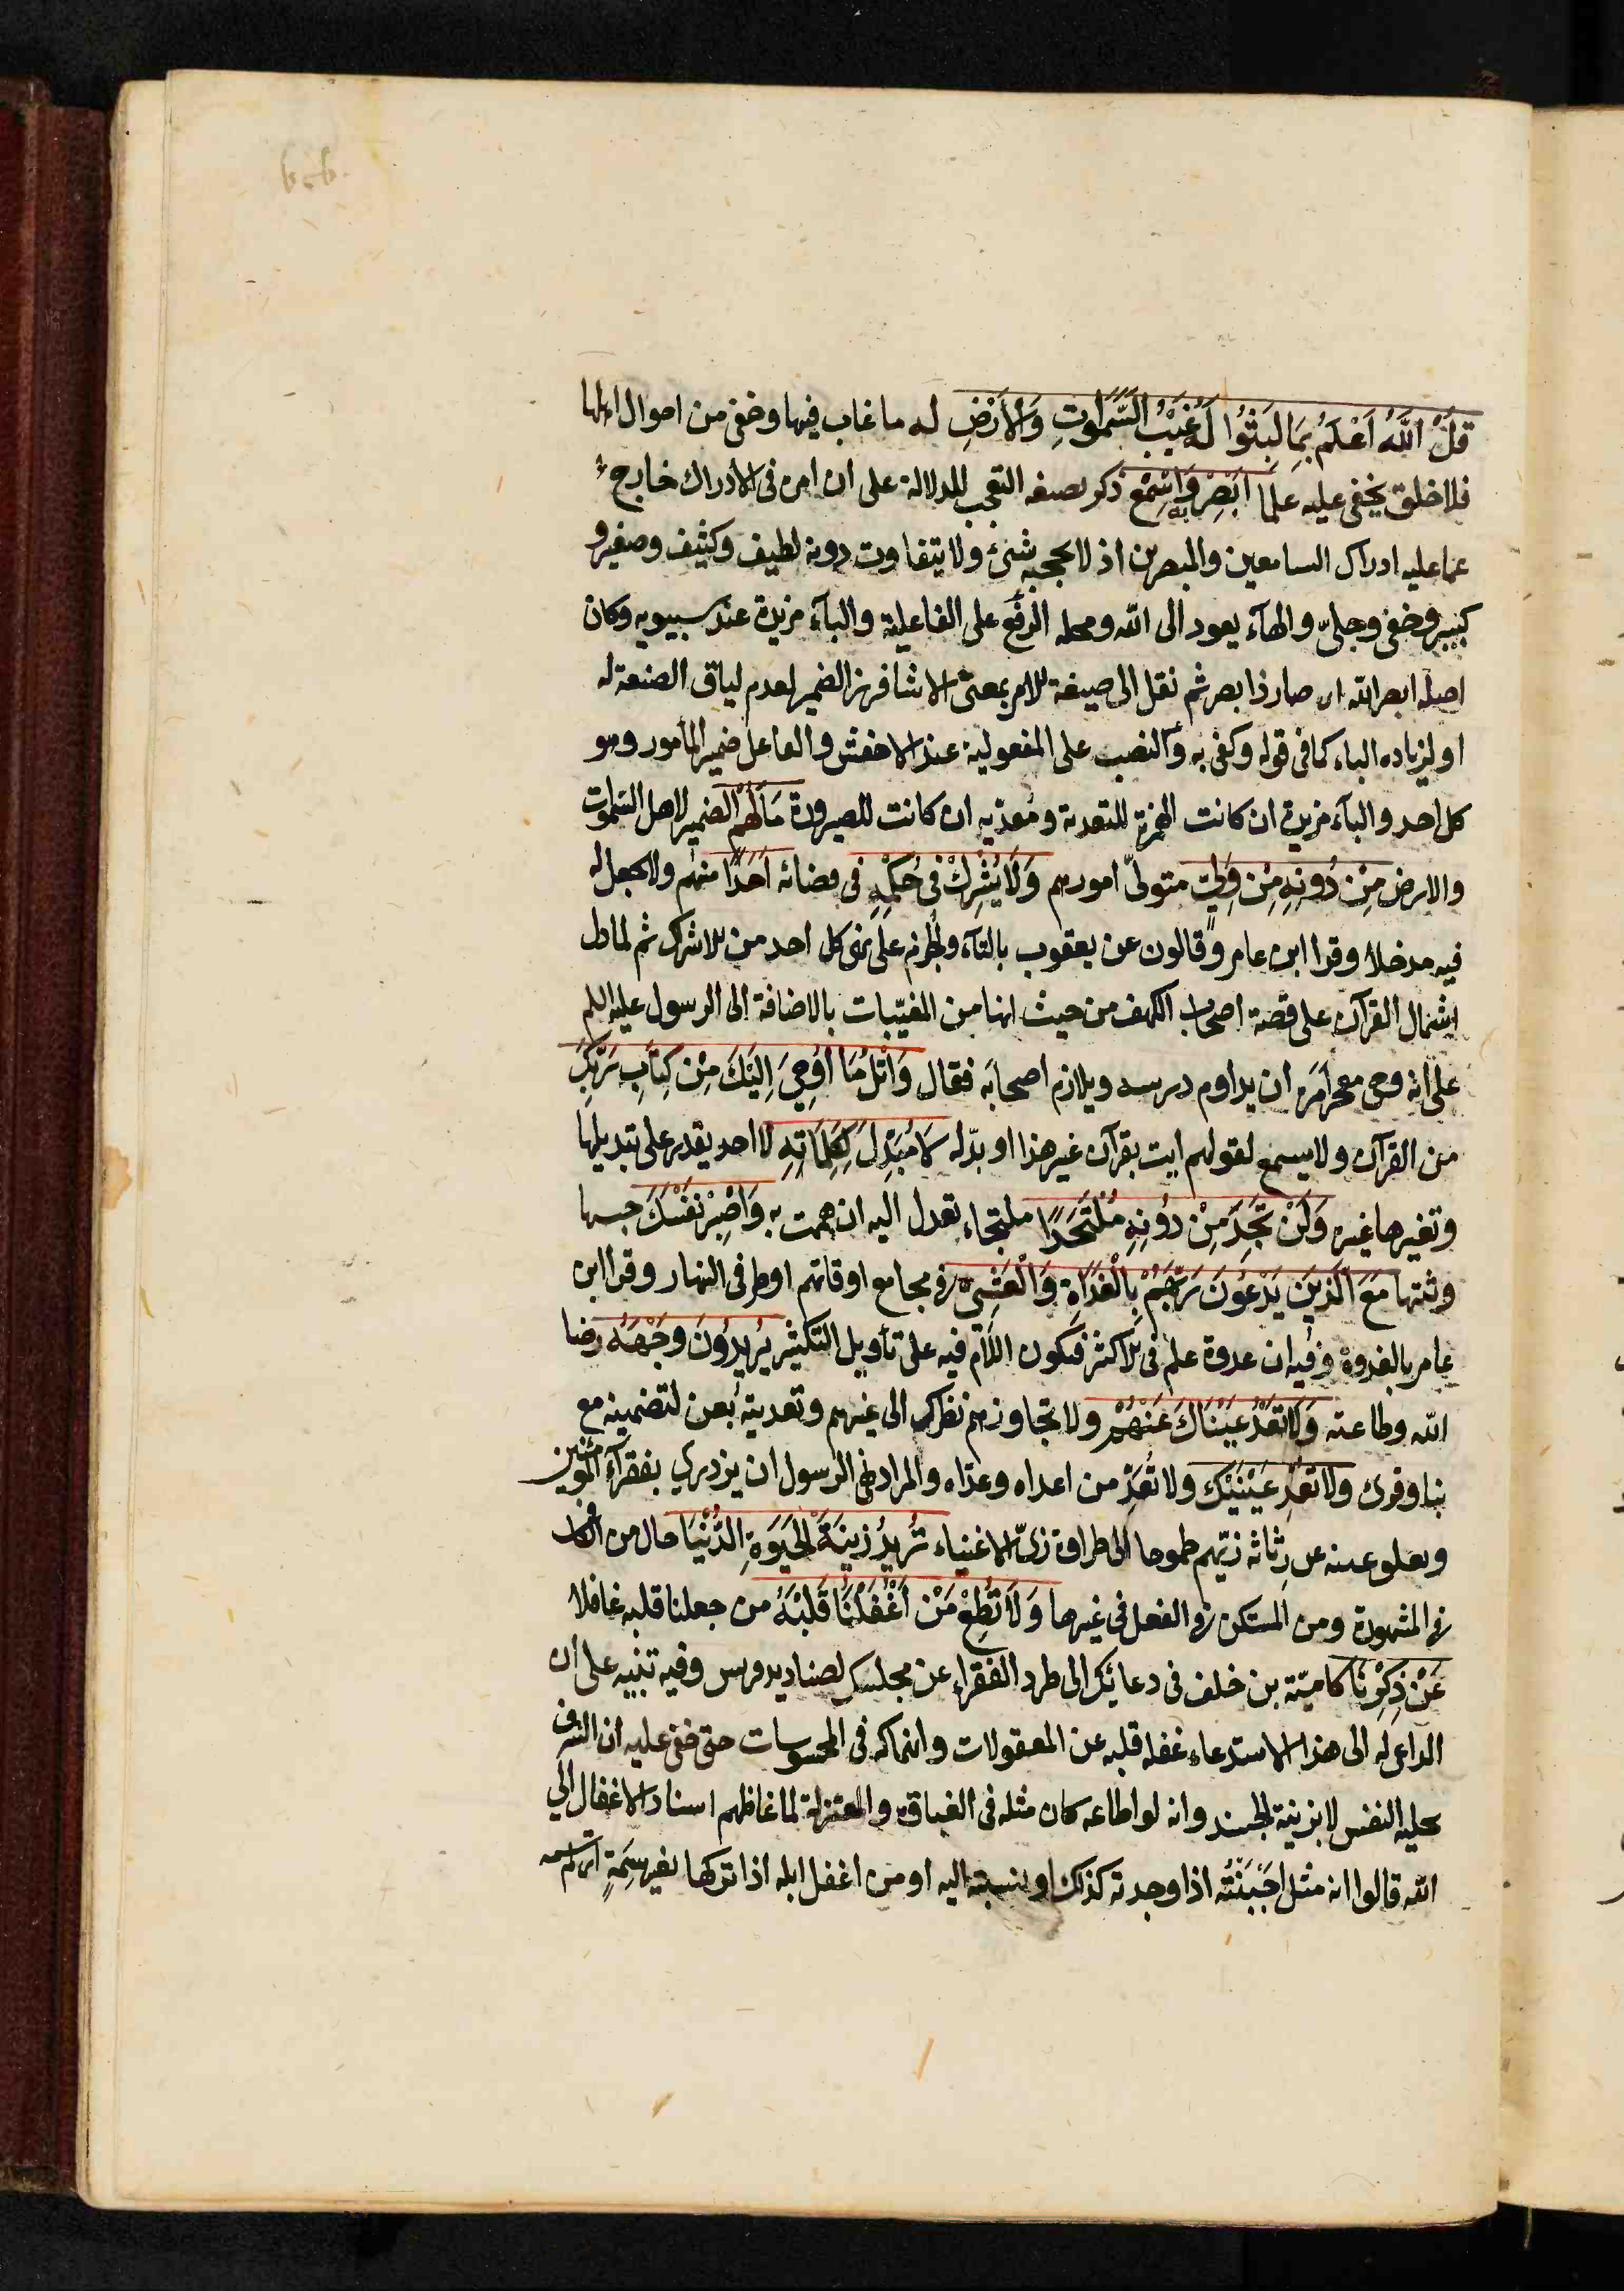 قُلِ اللَّهُ أَعْلَمُ بِمَا لَبِثُوا لَهُ غَيْبُ السَّمَوَاتِ وَالْأَرْضِ له ما غاب فيها وخفى من احوال اهلها
فلا خلق يخفى عليه علما أَبْصِرْ بِهِ وَأَسْمِعْ ذكر بصيغه التعجب للدلالة على ان امره فى الادراك خارج
عما عليه ادراك السامعين والمبصرين اذ لا يحجبه شئ ولا يتفاوت دونه لطيف وكثيف وصغير و
كبير وخفى وجلىّ والهآء يعود الى الله ومحله الرفع على الفاعلية والبآء مزيدة عند سيبويه وكان
اصله ابصر الله اى صار ذا بصر ثم نقل الى صيغة الامر بمعنى الانشا فبرز الضمير لعدم لياق الصنعة له
او لزياده الباء كما فى قوله وكفى به والنصب على المفعولية عند الاخفش والفاعل ضمير المأمور وهو
كل احد والبآء مزيدة ان كانت الهمزة للتعدية ومعدّيه ان كانت للصيرورة مَا لَهُمْ الضمير لاهل السموات
والارض مِنْ دُونِهِ مِنْ وَلِيٍّ متولىّ امورهم وَلَا يُشْرِكُ فِى حُكْمِهِ فى قضائه أَحَدًا منهم ولا يجعل له
فيه مدخلا وقرا ابن عامر وقالون عن يعقوب بالتآء والجزم على نهى كل احد من الاشراك ثم لما دل
اشتمال القرآن على قصة اصحاب الكهف من حيث انها من المغيّبات بالاضافة الى الرسول عليه السلم
على انه وحى معجز أمَرَه ان يداوم درسه ويلازم اصحابَه فقال وَاتْلُ مَا أُوحِيَ إِلَيْكَ مِنْ كِتَابِ رَبِّكَ
من القرآن ولا يسمع لقولهم ايت بقرآن غير هذا او بدّله لَا مُبَدِّلَ لِكَلِمَاتِهِ لا احد يقدر على تبديلها
وتغيرها غيره وَلَنْ تَجِدَ مِنْ دُونِهِ مُلْتَحَدًا ملتجاء تعدل اليه ان هممت به وَاصْبِرْ نَفْسَكَ حبسها
وثبتها مَعَ الَّذِينَ يَدْعُونَ رَبَّهُمْ بِالْغَدَاةِ وَالْعَشِىِّ فى مجامع اوقاتهم او طرفى النهار وقرا ابن
عامر بالغدوة وفيه ان غدوة علم فى الاكثر فتكون اللام فيه على تأويل التكثير يُرِيدُونَ وَجْهَهُ رضا
الله وطاعته وَلَا تَعْدُ عَيْنَاكَ عَنْهُمْ ولا تجاوزهم نظرك الى غيرهم وتعديته بعن لتضمينه مع
نبا وقرى ولا تعدِ عَيْنَيْك ولا تُعَدِّ من اعداه وعدّاه والمراد نهى الرسول ان يزدرى بفقرآء المؤمنين
ويعلو عينه عن رِثاثة زيّهم طموحا الى طراوة زىّ الاغنياء تُرِيدُ زِينَةَ الْحَيَوةِ الدُّنْيَا حال من الكاف
فى المشهورة ومن المستكن فى الفعل فى غيرها وَلَا تُطِعْ مَنْ أَغْفَلْنَا قَلْبَهُ من جعلنا قلبه غافلا
عَنْ ذِكْرِنَا كاميّة بن خلف فى دعائك الى طرد الفقراء عن مجلسك لصناديد قريس وفيه تنبيه على ان
الداعى له الى هذا الاستدعاء غفله قلبه عن المعقولات وانهماكه فى المحسوسات حتى خفى عليه ان الشرف
بحليه النفس لا بزينة الجسد وانه لو اطاعه كان مثله فى الغباوة والمعتزلة لما غاظهم اسناد الاغفال الى
الله قالوا انه مثل اجبَنْتُه اذا وجدته كذلك او نسبته اليه او من اغفل ابله اذا تركها بغير سِمَةٍ